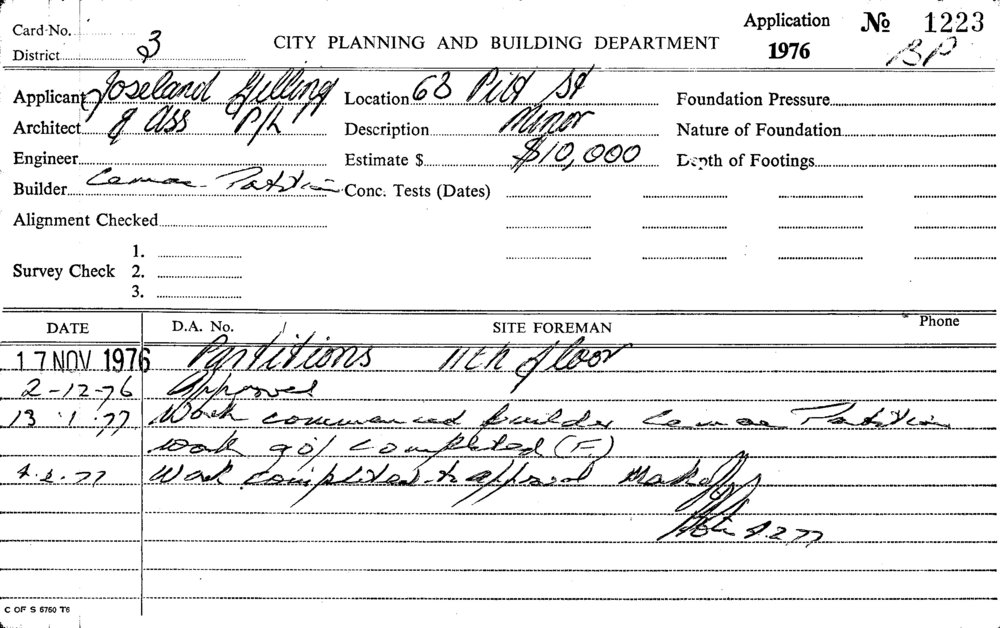 Application No 1223
Card No.
District 3
CITY PLANNING AND BUILDING DEPARTMENT
1976
BP
Applicant Joseland Gilling Location 68 Pitt St Foundation Pressure
Architect & Ass P/L Description Minor Nature of Foundation
Engineer Estimate $ $10,000 Depth of Footings
Builder Cemac Partition Conc. Tests (Dates)
Alignment Checked
1.
Survey Check 2.
3.
DATE D.A. No. SITE FOREMAN Phone
17 NOV 1976 Partitions 11th floor
2-12-76 Approved
13.1.77 Work commenced builder Cemac Partition
work 90% completed (F.)
4.2.77 Work completed to approval
4.2.77
C OF S 5760 T6